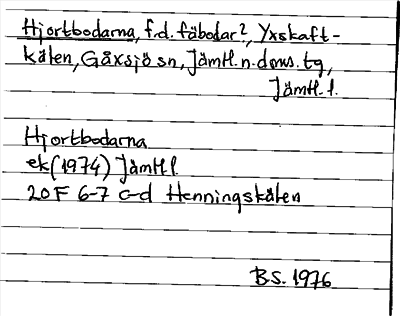 Hjortbodarna, f.d. fäbodar?, Yxskaft-
kälen, Gåxsjö sn, Jämtl. n. doms. tg,
Jämtl. l.
Hjortbodarna
ek (1974) Jämtl. l
20F 6-7 c-d Henningskälen
B.S. 1976